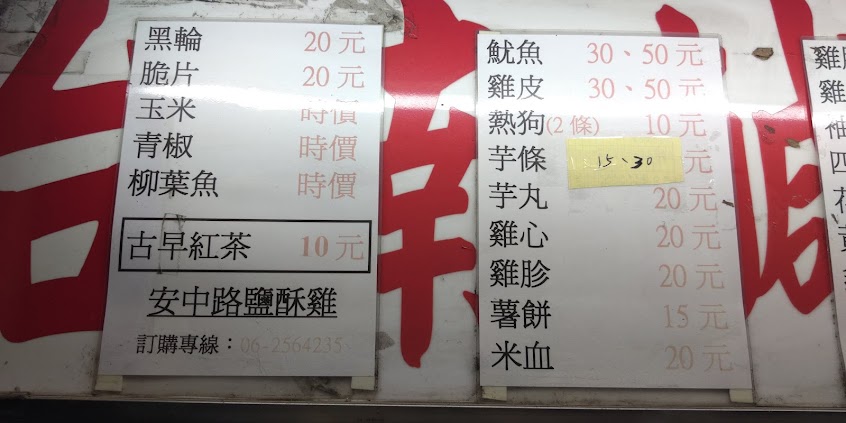 黑輪 20元
脆片 20元
玉米 時價
青椒 時價
柳葉魚 時價
古早紅茶 10元
安中路鹽酥雞
訂購專線：06-2564235
魷魚 30、50元
雞皮 30、50元
熱狗(2條) 10元
芋條 15、30元
芋丸 20元
雞心 20元
雞胗 20元
薯餅 15元
米血 20元
雞
雞
四